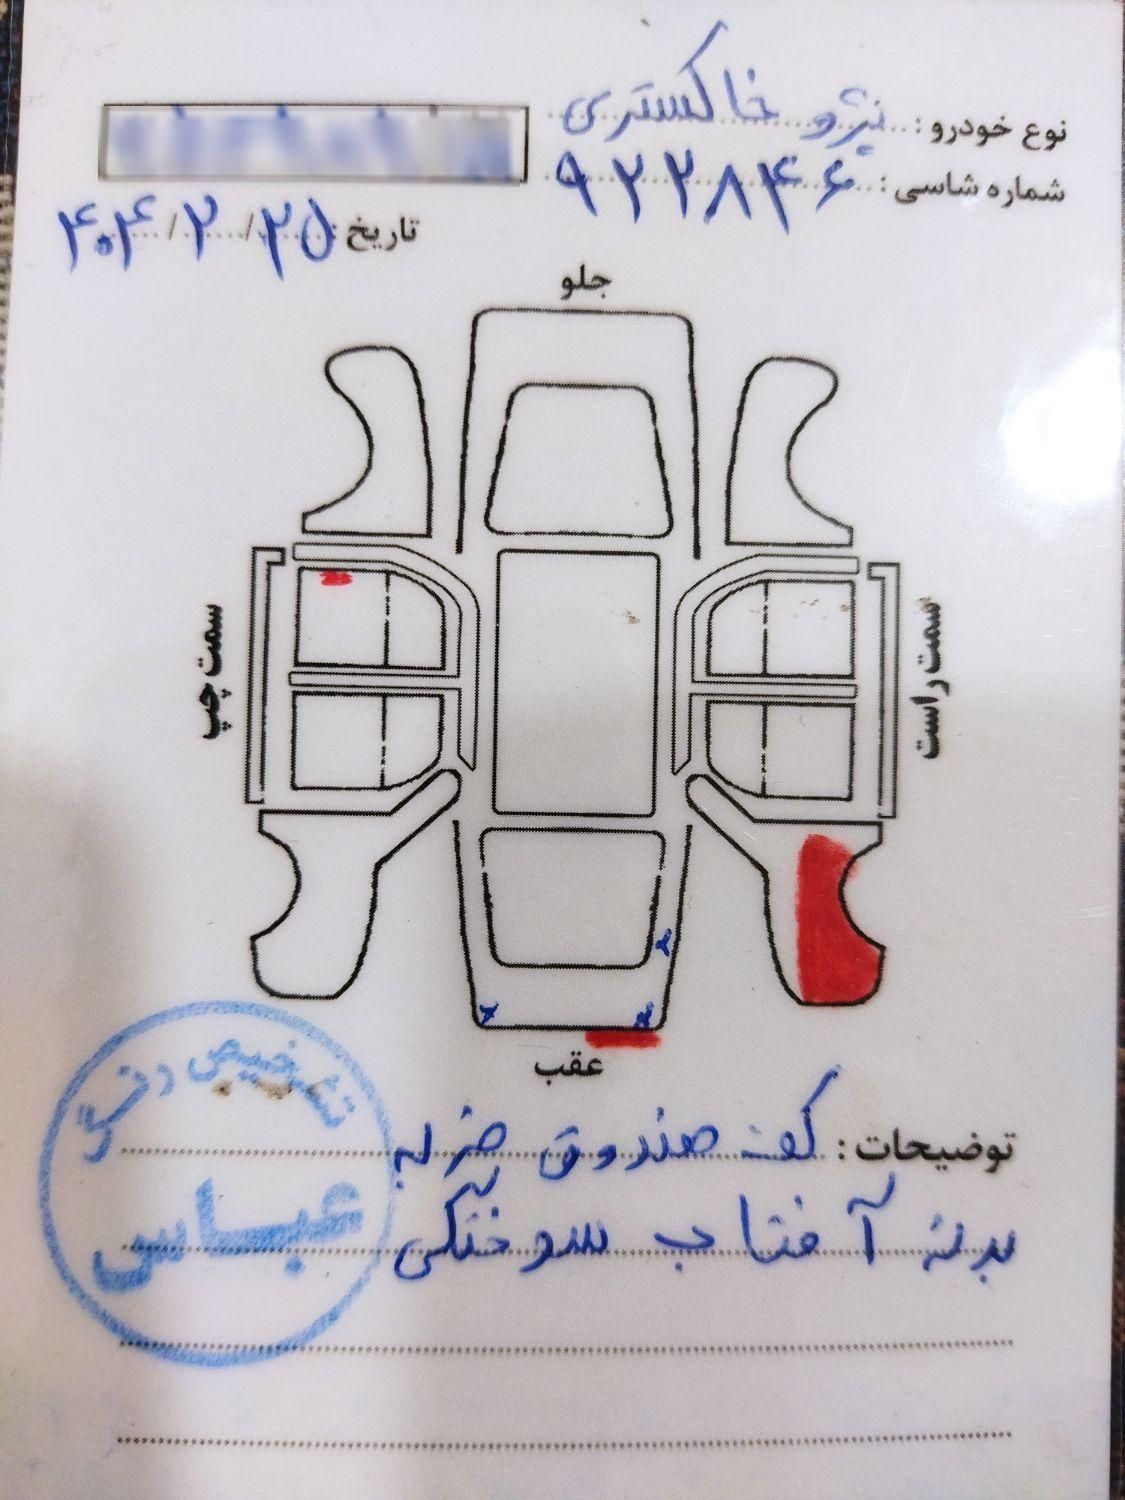 نوع خودرو : پژو خاکستری
شماره شاسی : ۹۲۲۸۴۶
تاریخ : ۴۰۴/۲/۲۵
جلو
سمت چپ
سمت راست
عقب
توضیحات : کف صندوق ضربه
بدنه آفتاب سوختگی
تشخیص رنگ
عباس